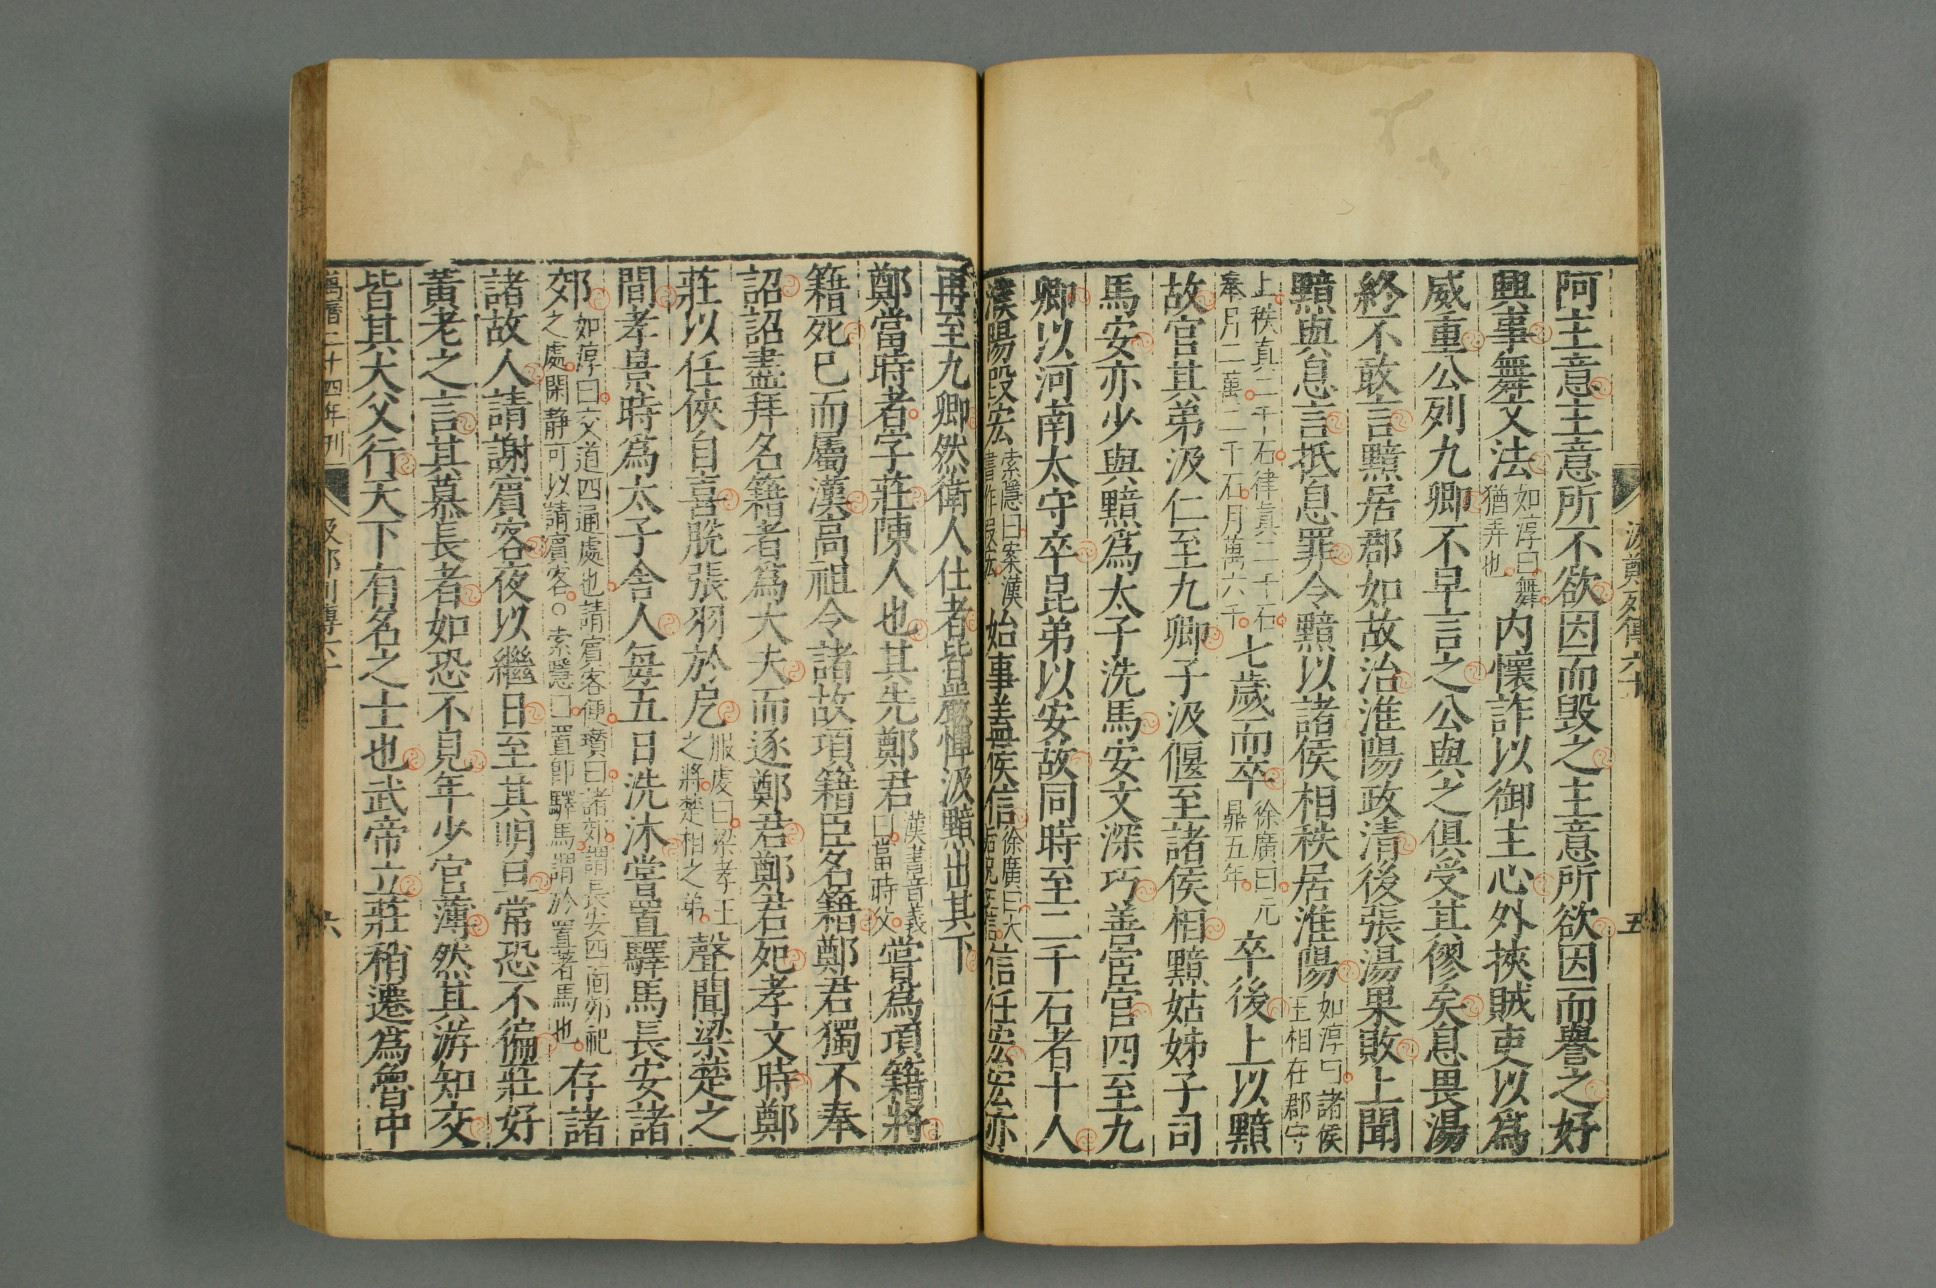 汲鄭列傳六十
五
阿主意主意所不欲因而毁之主意所欲因而譽之好
興事舞文法如淳曰舞猶弄也内懷詐以御主心外挾賊吏以爲
威重公列九卿不早言之公與之俱受其僇矣息畏湯
終不敢言黯居郡如故治淮陽政清後張湯果敗上聞
黯與息言抵息罪令黯以諸侯相秩居淮陽如淳曰諸侯王相在郡守
上秩真二千石律真二千石奉月二萬二千石月萬六千七歲而卒徐廣曰元鼎五年卒後上以黯
故官其弟汲仁至九卿子汲偃至諸侯相黯姑姊子司
馬安亦少與黯爲太子洗馬安文深巧善宦官四至九
卿以河南太守卒昆弟以安故同時至二千石者十人
濮陽段宏索隱曰案漢書作段宏始事蓋侯信徐廣曰太后兄王信信任宏宏亦
再至九卿然衛人仕者皆嚴憚汲黯出其下
鄭當時者字莊陳人也其先鄭君漢書音義曰當時父嘗爲項籍將
籍死已而屬漢高祖令諸故項籍臣名籍鄭君獨不奉
詔詔盡拜名籍者爲大夫而逐鄭君鄭君死孝文時鄭
莊以任俠自喜脫張羽於戹服虔曰梁孝王之將楚相之弟聲聞梁楚之
間孝景時爲太子舍人毎五日洗沐嘗置驛馬長安諸
郊如淳曰交道四通處也請賓客便瓚曰諸郊謂長安四面郊祀之處閑靜可以請賓客○索隱曰置即驛馬謂於置著馬也存諸
諸故人請謝賓客夜以繼日至其明旦常恐不徧莊好
黃老之言其慕長者如恐不見年少官薄然其游知交
皆其大父行天下有名之士也武帝立莊稍遷爲魯中
萬曆二十四年刊
汲鄭列傳六十
六